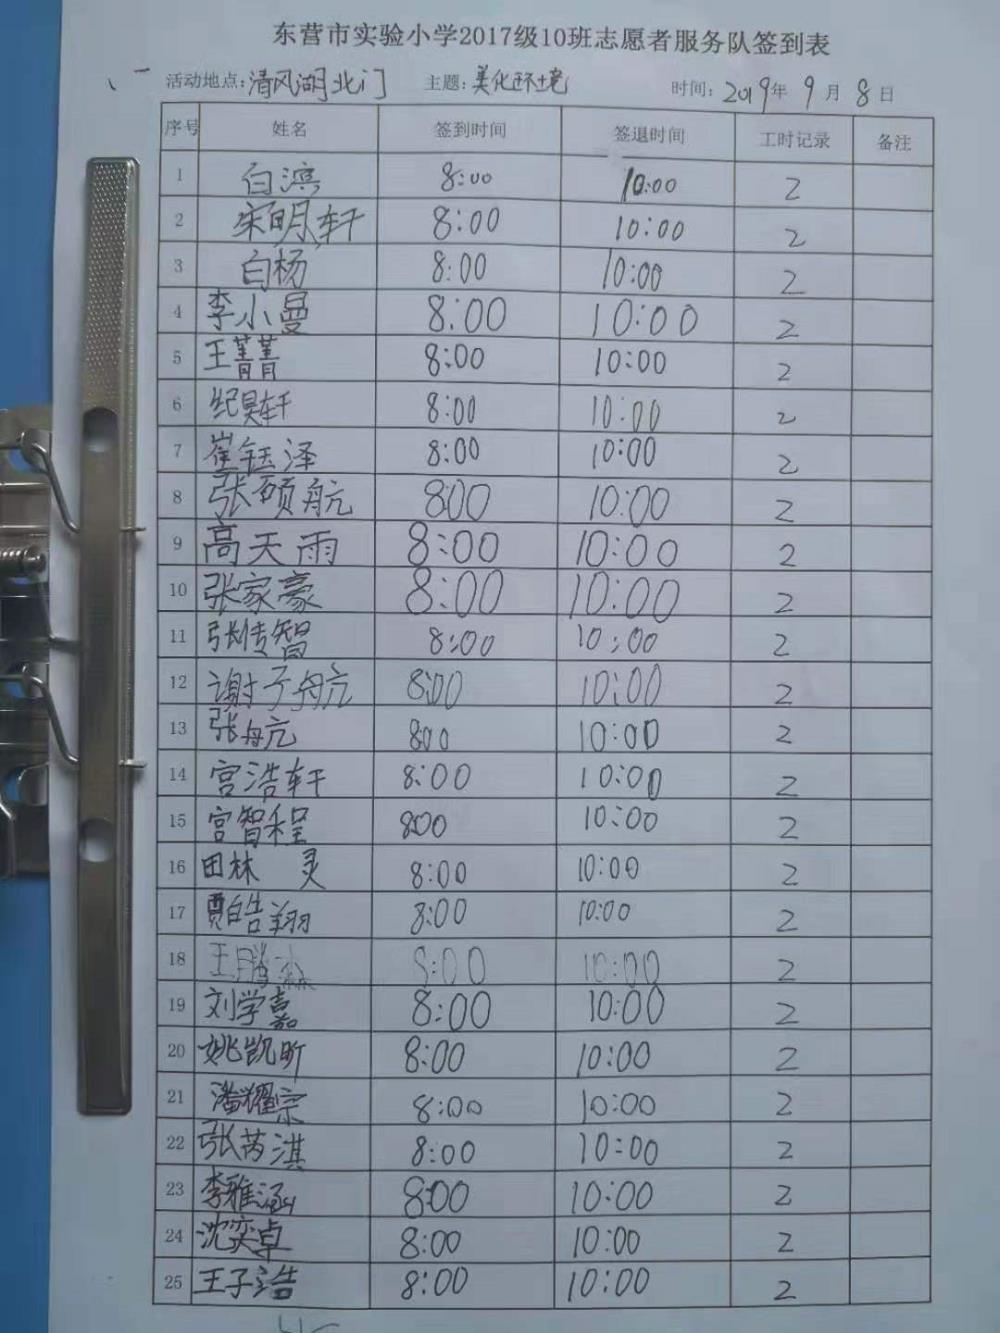 东营市实验小学2017级10班志愿者服务队签到表
活动地点:清风湖北门 主题:美化环境 时间:2019年9月8日
序号 姓名 签到时间 签退时间 工时记录 备注
1 白滨 8:00 10:00 2
2 宋明轩 8:00 10:00 2
3 白杨 8:00 10:00 2
4 李小曼 8:00 10:00 2
5 王菁菁 8:00 10:00 2
6 纪昊轩 8:00 10:00 2
7 崔钰泽 8:00 10:00 2
8 张硕航 800 10:00 2
9 高天雨 8:00 10:00 2
10 张家豪 8:00 10:00 2
11 张传智 8:00 10:00 2
12 谢子舟亢 8:00 10:00 2
13 张舟亢 800 10:00 2
14 宫浩轩 8:00 10:00 2
15 宫智程 800 10:00 2
16 田林 灵 8:00 10:00 2
17 贾皓翔 8:00 10:00 2
18 王腾淼 8:00 10:00 2
19 刘学嘉 8:00 10:00 2
20 姚凯昕 8:00 10:00 2
21 潘耀宗 8:00 10:00 2
22 张芮淇 8:00 10:00 2
23 李雅涵 8:00 10:00 2
24 沈奕卓 8:00 10:00 2
25 王子浩 8:00 10:00 2